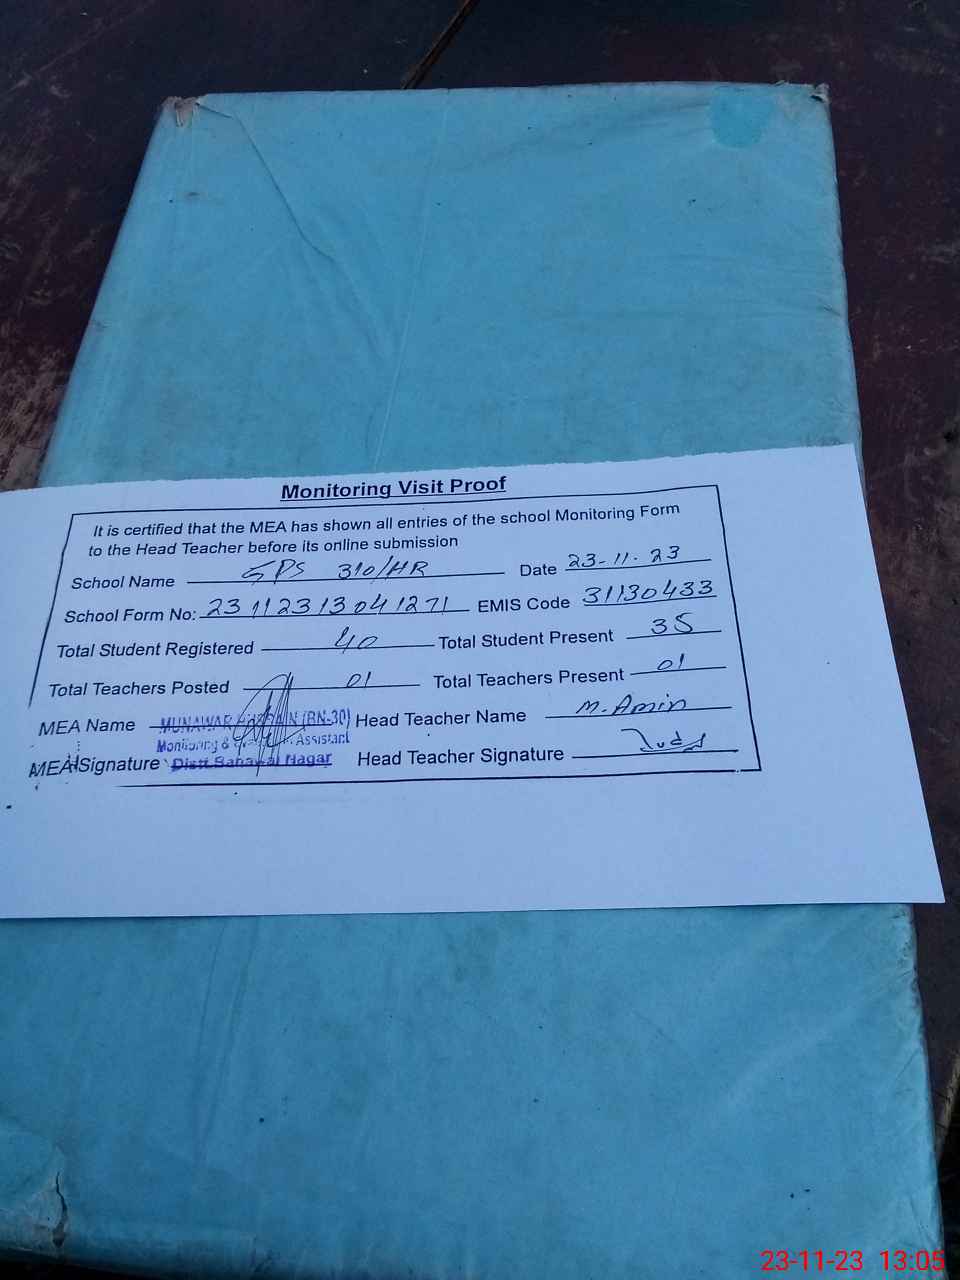 Monitoring Visit Proof
It is certified that the MEA has shown all entries of the school Monitoring Form
to the Head Teacher before its online submission
School Name GPS 310/HR Date 23-11-23
School Form No: 23112313041271 EMIS Code 31130433
Total Student Registered 40 Total Student Present 35
Total Teachers Posted 01 Total Teachers Present 01
MEA Name MUNAWAR (BN-30) Head Teacher Name M. Amin
Monitoring & Assistant
MEA Signature Distt. Bahawal Nagar Head Teacher Signature
23-11-23 13:05